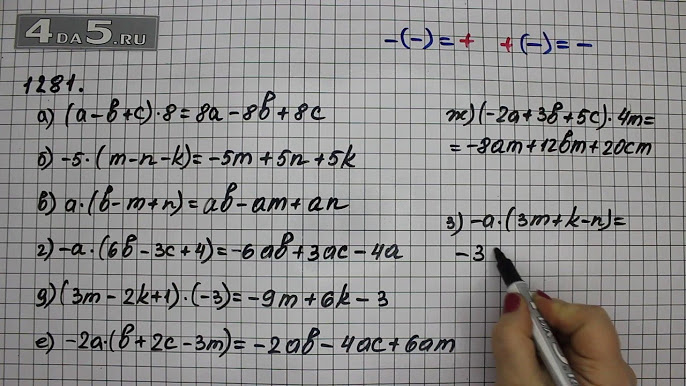 4 DA 5.RU
-(-) = + +(-) = -
1281.
а) (a-b+c)·8=8a-8b+8c
б) -5·(m-n-k)=-5m+5n+5k
в) a·(b-m+n)=ab-am+an
г) -a·(6b-3c+4)=-6ab+3ac-4a
д) (3m-2k+1)·(-3)=-9m+6k-3
е) -2a·(b+2c-3m)=-2ab-4ac+6am
ж) (-2a+3b+5c)·4m=
=-8am+12bm+20cm
з) -a·(3m+k-n)=
-3